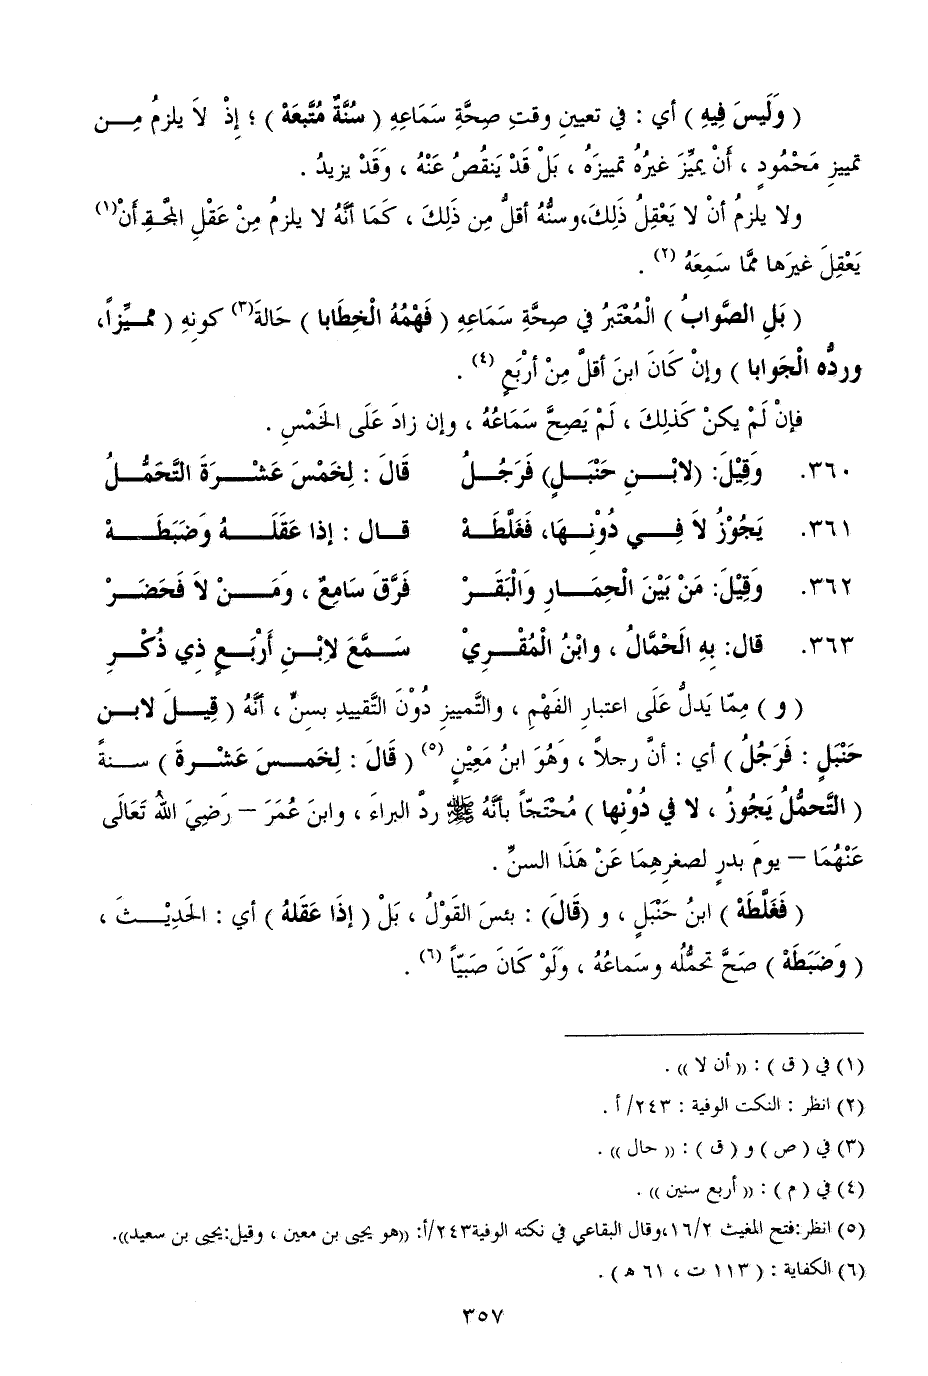 ( وَلَيسَ فِيهِ ) أي : في تعيينِ وقتِ صِحَّةِ سَمَاعِهِ ( سُنَّةٌ مُتَّبعَهْ ) ؛ إذْ لاَ يلزمُ مِـن
تمييزِ مَحْمُودٍ ، أَنْ يميِّزَ غيرُهُ تمييزَهُ ، بَلْ قَدْ يَنقُصُ عَنْهُ ، وَقَدْ يزيدُ .
ولا يلزمُ أنْ لا يَعْقِلُ ذَلِكَ،وسنُّهُ أقلُّ مِن ذَلِكَ ، كَمَا أنَّهُ لا يلزمُ مِنْ عَقْلِ المَجَّةِ أَنْ(١)
يَعْقِلَ غيرَها ممَّا سَمِعَهُ (٢) .
( بَلِ الصَّوابُ ) الْمُعْتبَرُ في صِحَّةِ سَمَاعِهِ ( فَهْمُهُ الْخِطَابا ) حَالةَ(٣) كونِهِ ( مميِّزاً،
وردُّه الْجَوابا ) وإنْ كَانَ ابنَ أقلَّ مِنْ أرْبَعٍ (٤) .
فإنْ لَمْ يكنْ كَذلِكَ ، لَمْ يَصِحَّ سَمَاعُهُ ، وإن زادَ عَلَى الخَمْسِ .
٣٦٠. وَقِيْلَ: (لابْـنِ حَنْبَلٍ) فَرَجُلُ قَالَ : لِخَمْسَ عَشْـرَةَ التَّحَمُّلُ
٣٦١. يَجُوْزُ لاَ فِـي دُوْنِـهَا، فَغَلَّطَهْ قـال : إذا عَقَلَـهُ وَضَبَطَـهْ
٣٦٢. وَقِيْلَ: مَنْ بَيْنَ الْحِمَـارِ وَالْبَقَرْ فَرَّقَ سَامِعٌ ، وَمَـنْ لاَ فَحَضَرْ
٣٦٣. قال: بِهِ الَحْمَّالُ ، وابْنُ الْمُقْـرِي سَـمَّعَ لاِبْـنِ أَرْبَعٍ ذِي ذُكْرِ
( و ) مِمّا يَدلُّ عَلَى اعتبارِ الفَهْمِ ، والتَّمييزِ دُوْنَ التَّقييدِ بِسنٍّ ، أنَّهُ ( قِيـلَ لابـن
حَنْبَلٍ : فَرَجُلُ ) أي : أنَّ رجلاً ، وَهُوَ ابنُ مَعِيْنٍ (٥) ( قَالَ : لِخَمـسَ عَشْـرةَ ) سـنةً
( التَّحمُّلُ يَجُوزُ ، لا في دُوْنِها ) مُحْتَجّاً بأنَّهُ ﷺ ردَّ البراءَ ، وابنَ عُمَرَ – رَضِيَ اللهُ تَعَالَى
عَنْهُمَا – يومَ بدرٍ لصغرِهِمَا عَنْ هَذَا السنِّ .
( فَغَلَّطَهْ ) ابنُ حَنْبَلٍ ، و (قَالَ) : بئسَ القَوْلُ ، بَلْ ( إذَا عَقَلهُ ) أي : الحَدِيْـثَ ،
( وَضَبَطَهْ ) صَحَّ تحمُّلُه وسَماعُهُ ، ولَوْ كَانَ صَبِيّاً (٦) .
(١) في ( ق ) : (( أن لا )) .
(٢) انظر : النكت الوفية : ٢٤٣/ أ .
(٣) في ( ص ) و ( ق ) : (( حال )) .
(٤) في ( م ) : (( أربع سنين )) .
(٥) انظر:فتح المغيث ١٦/٢،وقال البقاعي في نكته الوفية٢٤٣/أ: ((هو يحيى بن معين ، وقيل:يحيى بن سعيد)).
(٦) الكفاية : ( ١١٣ ت ، ٦١ ه ) .
٣٥٧